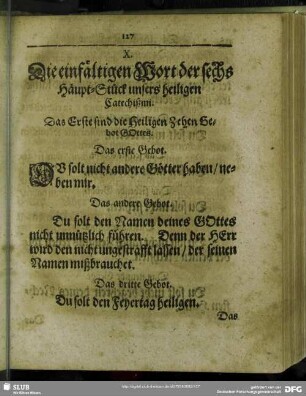 127
X.
Die einfältigen Wort der sechs
Häupt-Stück unsers heiligen
Catechismi.
Das Erste sind die Heiligen Zehen Ge-
bot GOttes.
Das erste Gebot.
DV solt nicht andere Götter haben / ne-
ben mir.
Das andere Gebot.
Du solt den Namen deines GOttes
nicht unnützlich führen. Denn der HErr
wird den nicht ungestrafft lassen / der seinen
Namen mißbrauchet.
Das dritte Gebot.
Du solt den Feyertag heiligen.
Das
SLUB
Wir führen Wissen.
gefördert von der
Deutschen Forschungsgemeinschaft
DFG